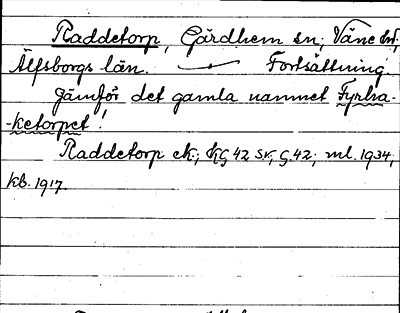 Raddetorp, Gärdhem sn, Väne hd,
Älfsborgs län. — Fortsättning.
Jämför det gamla namnet Fyrka-
-ketorpet!
Raddetorp ek.; KG 42 SV, G. 42; ml. 1934,
kb. 1917.